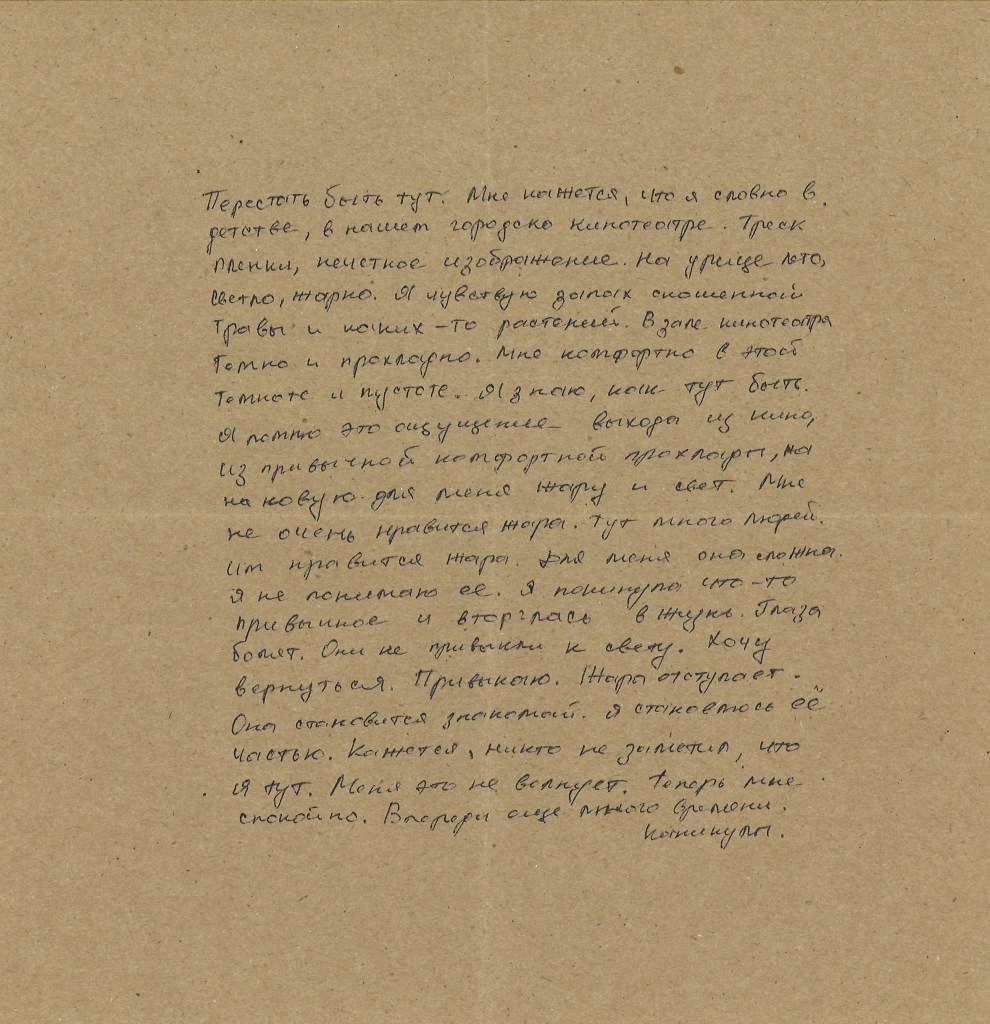 Перестать быть тут. Мне кажется, что я словно в
детстве, в нашем городско кинотеатре. Треск
пленки, нечеткое изображение. На улице лето,
светло, жарко. Я чувствую запах скошенной
травы и каких-то растений. В зале кинотеатра
темно и прохладно. Мне комфортно в этой
темноте и пустоте. Я знаю, как тут быть.
Я помню это ощущение выхода из кино,
из привычной комфортной прохлады, на
на новую для меня жару и свет. Мне
не очень нравится жара. Тут много людей.
Им нравится жара. Для меня она сложна.
Я не понимаю её. Я покинула что-то
привычное и вторглась в жизнь. Глаза
болят. Они не привыкли к свету. Хочу
вернуться. Привыкаю. Жара отступает.
Она становится знакомой. Я становлюсь её
частью. Кажется, никто не заметил, что
я тут. Меня это не волнует. Теперь мне
спокойно. Впереди еще много времени.
Каникулы.